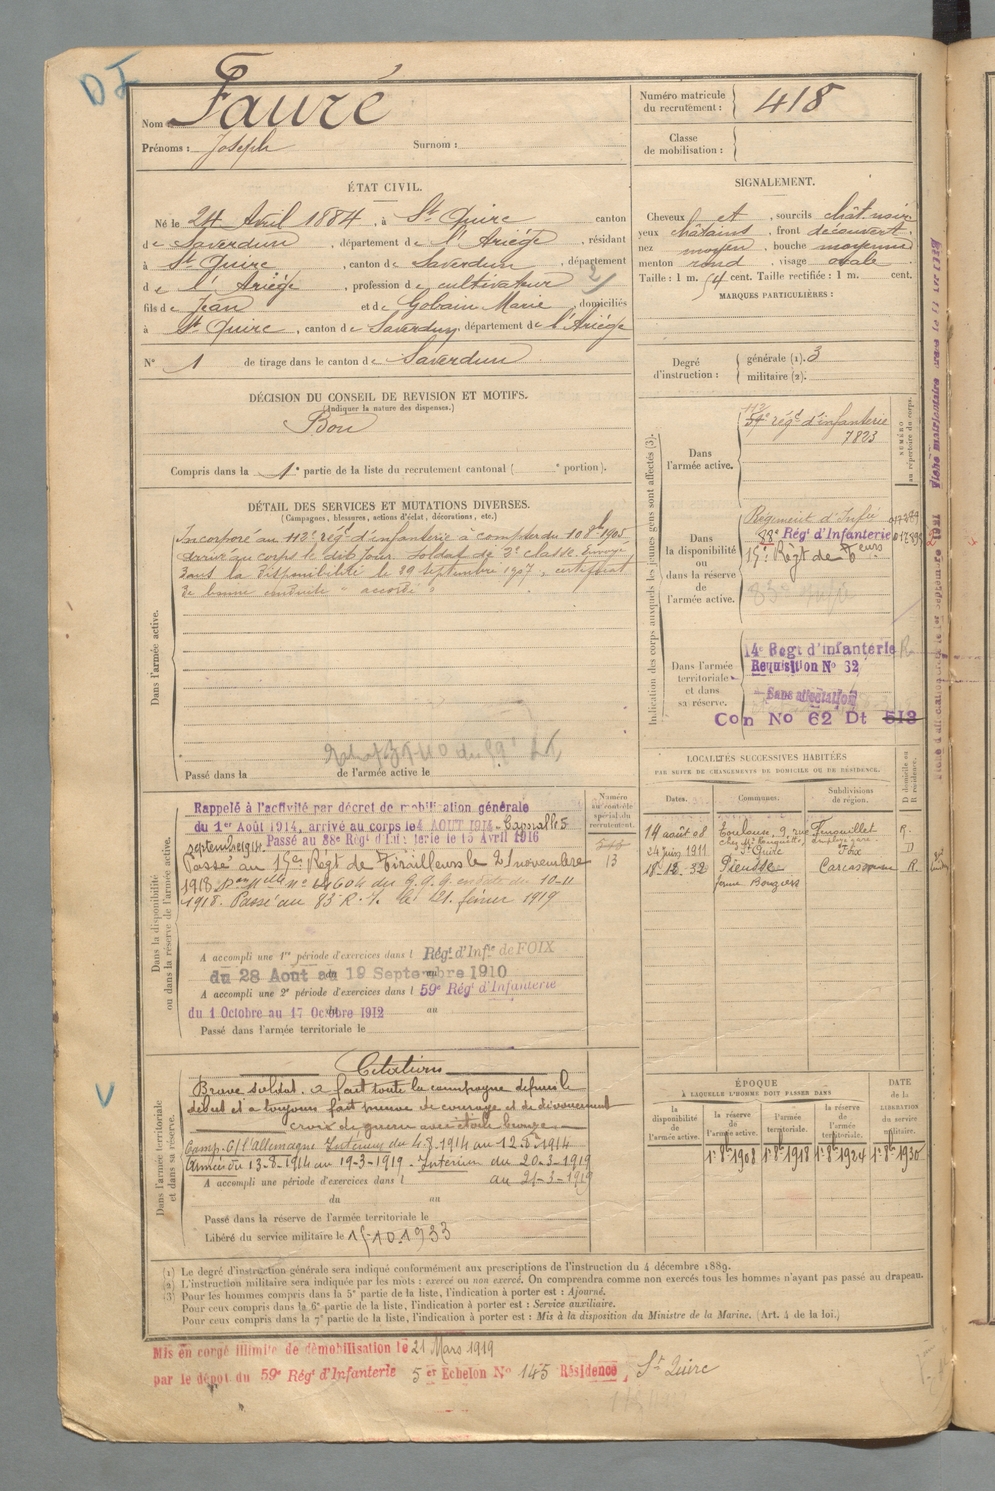 D I
Nom : Fauré
Prénoms : Joseph Surnom :
Numéro matricule
du recrutement : 418
Classe
de mobilisation :
ÉTAT CIVIL.
Né le 24 Avril 1884, à St Quirc canton
de Saverdun, département de l'Ariège, résidant
à St Quirc, canton de Saverdun, département
de l'Ariège, profession de cultivateur
fils de Jean et de Gobain Marie, domiciliés
à St Quirc, canton de Saverdun, département de l'Ariège
N° 1 de tirage dans le canton de Saverdun
SIGNALEMENT.
Cheveux et, sourcils chât noir
yeux châtains, front découvert
nez moyen, bouche moyenne
menton rond, visage ovale
Taille : 1 m. 54 cent. Taille rectifiée : 1 m. cent.
MARQUES PARTICULIÈRES :
Degré
d'instruction :
générale (1). 3
militaire (2).
DÉCISION DU CONSEIL DE REVISION ET MOTIFS.
(Indiquer la nature des dispenses.)
Bon
Compris dans la 1e partie de la liste du recrutement cantonal ( e portion).
DÉTAIL DES SERVICES ET MUTATIONS DIVERSES.
(Campagnes, blessures, actions d'éclat, décorations, etc.)
Dans l'armée active.
Incorporé au 112e régt d'infanterie à compter du 10 8bre 1905
arrivé au corps le dit jour. Soldat de 2e classe. Envoyé
dans la disponibilité le 29 septembre 1907, certificat
de bonne conduite "accordé"
Passé dans la de l'armée active le
Indication des corps auxquels les jeunes gens sont affectés (3).
NUMÉRO
au répertoire du corps.
Dans
l'armée active.
112
régt d'infanterie
7823
Dans
la disponibilité
ou
dans la réserve
de
l'armée active.
Régiment d'Infie
88e Régt d'Infanterie
15e Régt de Teurs
Dans l'armée
territoriale
et dans
sa réserve.
14e Regt d'infanterie R
Requisition No 32
Sans affectation
Con No 62 Dt 513
LOCALITÉS SUCCESSIVES HABITÉES
PAR SUITE DE CHANGEMENTS DE DOMICILE OU DE RÉSIDENCE.
Dates. Communes. Subdivisions
de région. D domicile ou
R résidence.
19 août 08 Toulouse, 9, rue
24 juin 1911 St Quirc Foix D
18-12-32 Pieusse Carcassonne R.
ferme
Dans la disponibilité
ou dans la réserve de l'armée active.
Numéro
au contrôle
spécial du
recrutement.
13
Rappelé à l'activité par décret de mobilisation générale
du 1er Août 1914, arrivé au corps le 4 AOUT 1914. Caporal le 5
septembre 1914. Passé au 88e Régt d'Infanterie le 15 Avril 1916
Passé au 15e Régt de Tirailleurs le 21 novembre
1918 Don Mlle no 64604 du G.Q.G en date du 10-11
1918. Passé au 83 R.I. le 21 février 1919
A accompli une 1re période d'exercices dans l Régt d'Infie de FOIX
du 28 Aout au 19 Septembre 1910
A accompli une 2e période d'exercices dans l 59e Régt d'Infanterie
du 1 Octobre au 17 Octobre 1912
Passé dans l'armée territoriale le
V
Dans l'armée territoriale
et dans sa réserve.
Citations
Brave soldat. a fait toute la campagne depuis le
début et a toujours fait preuve de courage et de dévouement
croix de guerre avec étoile bronze
Camp. C/ l'Allemagne Intérieur du 4-8-1914 au 12-8-1914
Armées du 13-8-1914 au 19-3-1919 - Intérieur du 20-3-1919
A accompli une période d'exercices dans l au 21-3-1919
du au
Passé dans la réserve de l'armée territoriale le
Libéré du service militaire le 15-10-1933
ÉPOQUE
À LAQUELLE L'HOMME DOIT PASSER DANS
la
disponibilité
de
l'armée active.
la réserve
de
l'armée active.
l'armée
territoriale.
la réserve
de l'armée
territoriale.
DATE
de la
LIBÉRATION
du service
militaire.
1r 8bre 1908 1r 8bre 1918 1r 8bre 1924 1r 8bre 1930
(1) Le degré d'instruction générale sera indiqué conformément aux prescriptions de l'instruction du 4 décembre 1889.
(2) L'instruction militaire sera indiquée par les mots : exercé ou non exercé. On comprendra comme non exercés tous les hommes n'ayant pas passé au drapeau.
(3) Pour les hommes compris dans la 5e partie de la liste, l'indication à porter est : Ajourné.
Pour ceux compris dans la 6e partie de la liste, l'indication à porter est : Service auxiliaire.
Pour ceux compris dans la 7e partie de la liste, l'indication à porter est : Mis à la disposition du Ministre de la Marine. (Art. 4 de la loi.)
Mis en congé illimité de démobilisation le 21 Mars 1919
par le dépôt du 59e Régt d'Infanterie 5 er Echelon No 145 Résidence, St Quirc